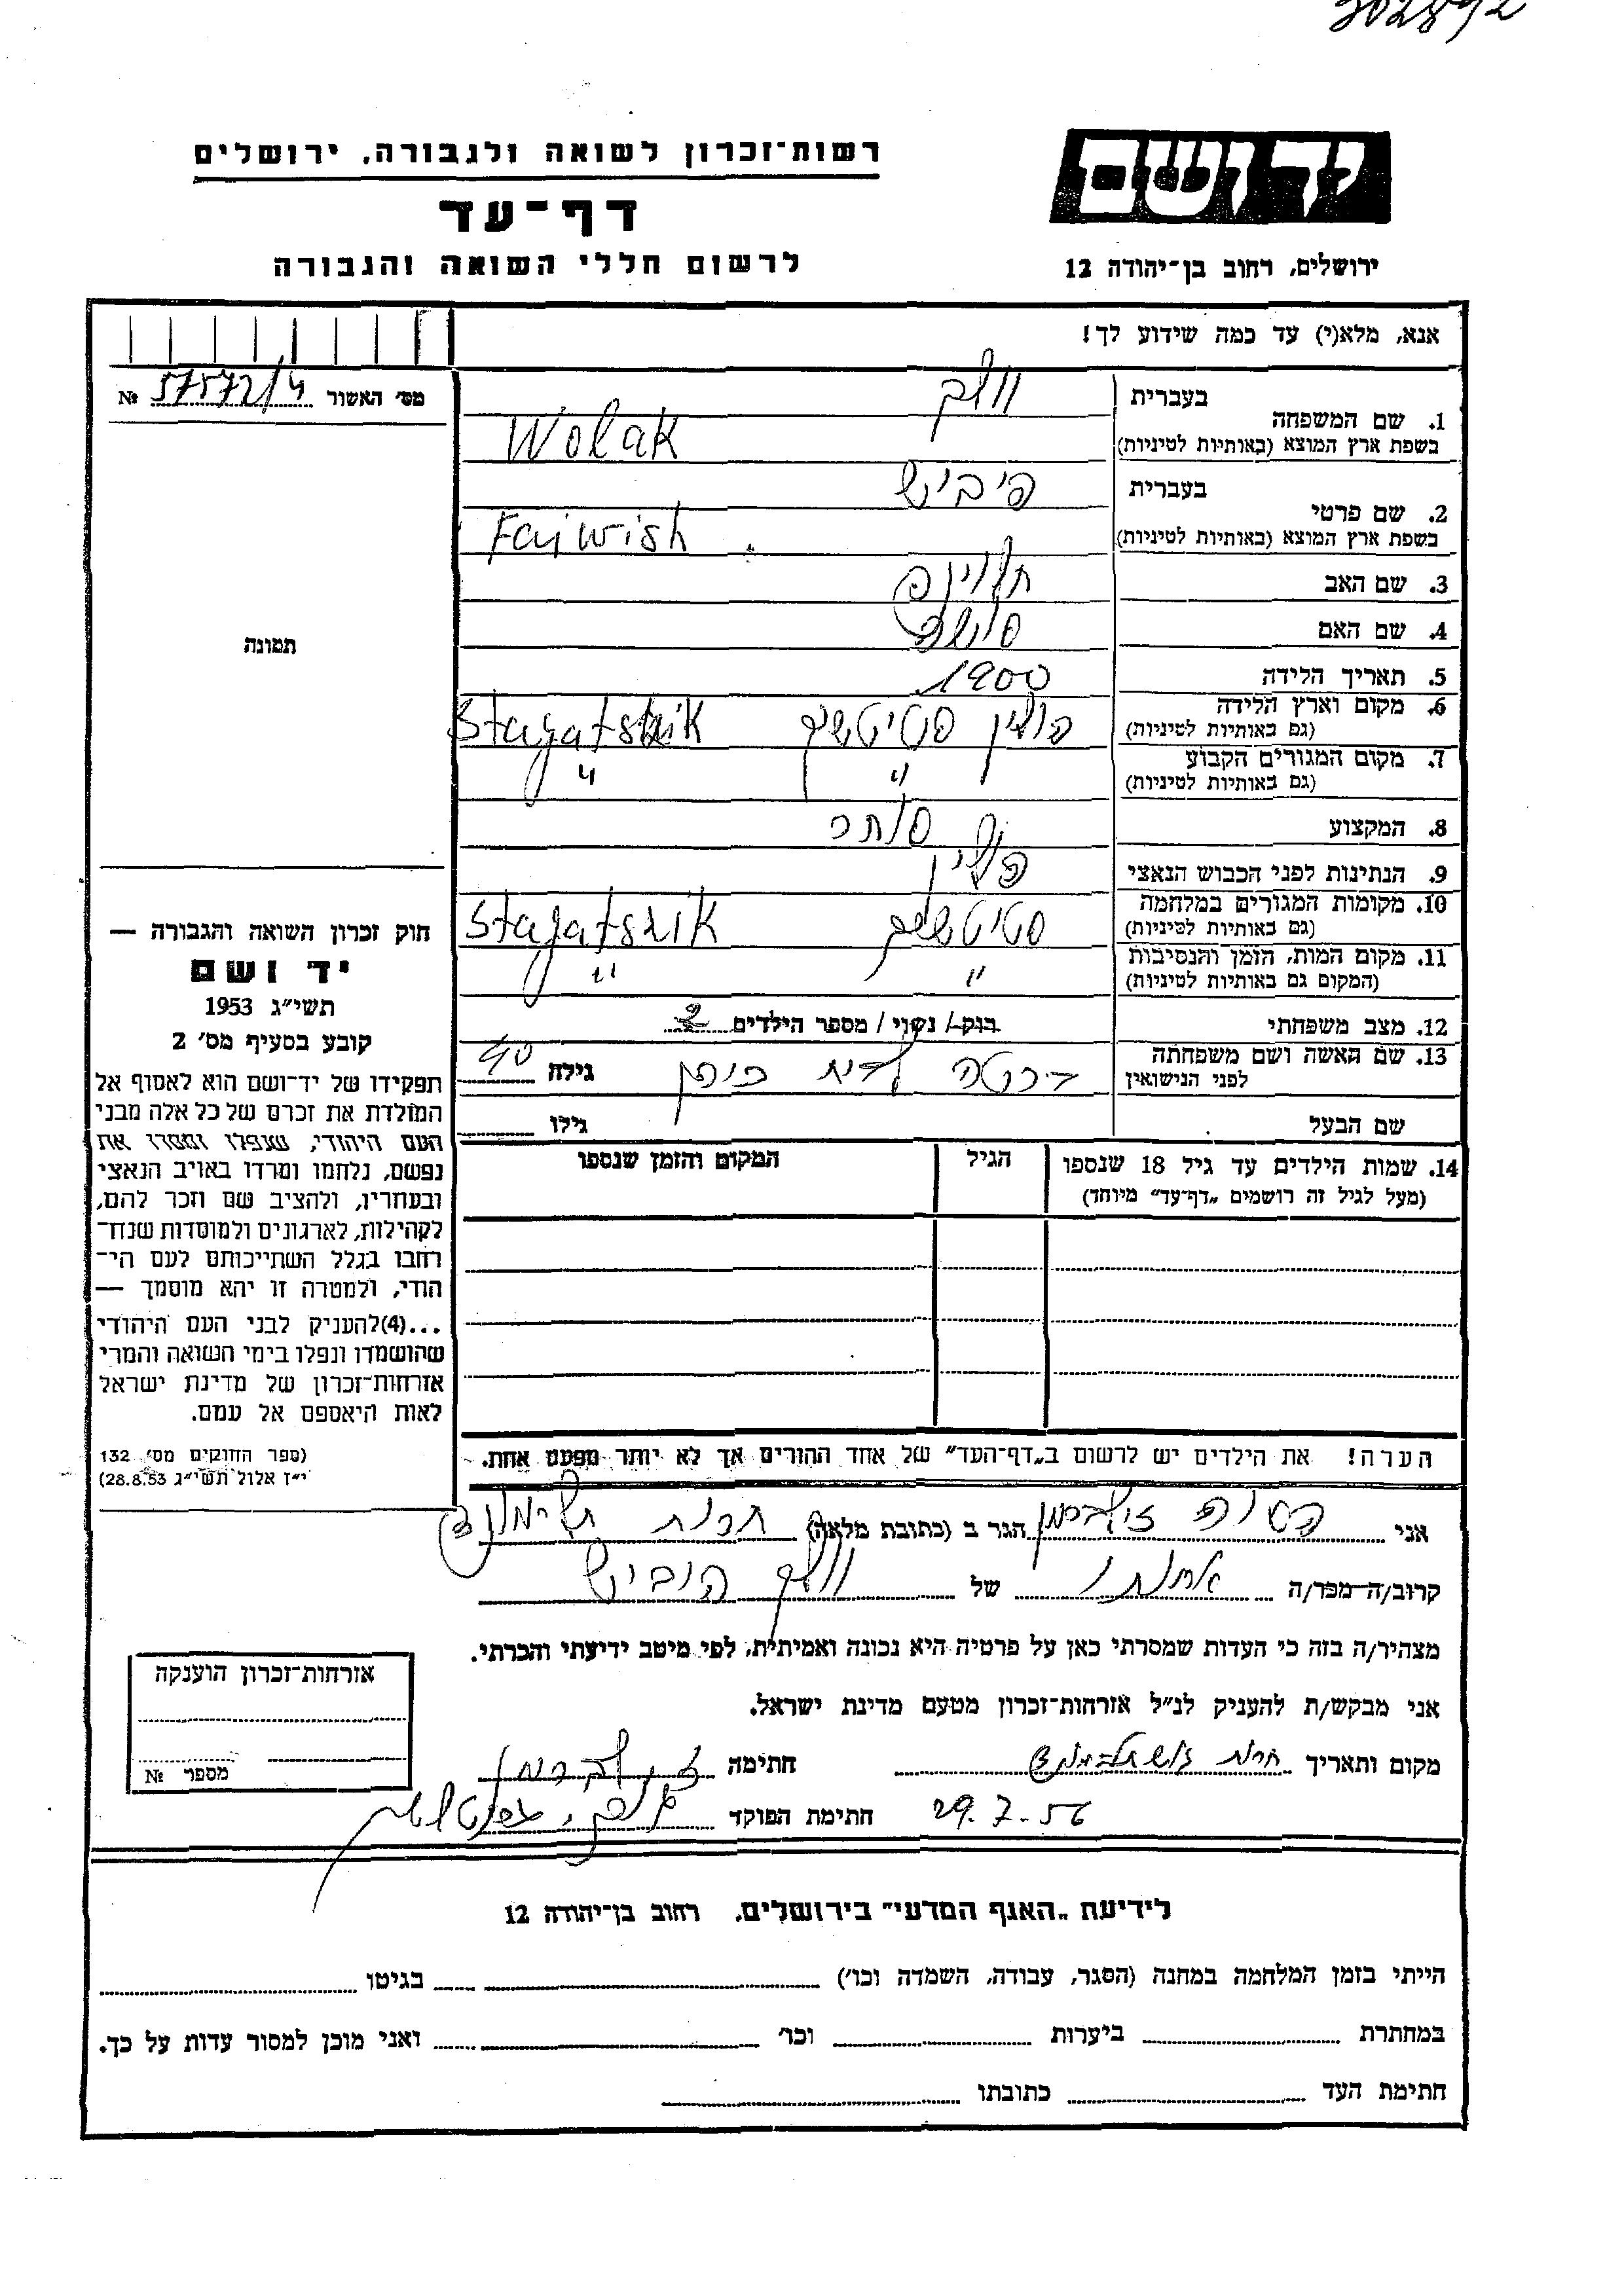 302892
רשות־זכרון לשואה ולגבורה, ירושלים
יד ושם
דף־עד
לרשום חללי השואה והגבורה
ירושלים, רחוב בן־יהודה 12
אנא, מלא(י) עד כמה שידוע לך!
מס׳ האשור № 57572/4
בעברית וולק
1. שם המשפחה
בשפת ארץ המוצא (באותיות לטיניות) Wolak
בעברית פיביש
2. שם פרטי
בשפת ארץ המוצא (באותיות לטיניות) Fajwish
3. שם האב
4. שם האם
5. תאריך הלידה 1900
6. מקום וארץ הלידה פולין
(גם באותיות לטיניות)
7. מקום המגורים הקבוע " "
(גם באותיות לטיניות)
8. המקצוע סוחר
9. הנתינות לפני הכבוש הנאצי פולין
10. מקומות המגורים במלחמה Stajatszik
(גם באותיות לטיניות)
11. מקום המות, הזמן והנסיבות " "
(המקום גם באותיות לטיניות)
12. מצב משפחתי רוק/ נשוי/ מספר הילדים 2
13. שם האשה ושם משפחתה לבית גילה 40
לפני הנישואין
שם הבעל גילו
14. שמות הילדים עד גיל 18 שנספו הגיל המקום והזמן שנספו
(מעל לגיל זה רושמים „דף־עד״ מיוחד)
הערה! את הילדים יש לרשום ב„דף־העד״ של אחד ההורים אך לא יותר מפעם אחת.
תמונה
חוק זכרון השואה והגבורה —
יד ושם
תשי״ג 1953
קובע בסעיף מס׳ 2
תפקידו של יד־ושם הוא לאסוף אל
המולדת את זכרם של כל אלה מבני
העם היהודי, שנפלו ומסרו את
נפשם, נלחמו ומרדו באויב הנאצי
ובעוזריו, ולהציב שם וזכר להם,
לקהילות, לארגונים ולמוסדות שנח־
רבו בגלל השתייכותם לעם הי־
הודי, ולמטרה זו יהא מוסמך —
...(4)להעניק לבני העם היהודי
שהושמדו ונפלו בימי השואה והמרי
אזרחות־זכרון של מדינת ישראל
לאות היאספם אל עמם.
(ספר החוקים מס׳ 132
י״ז אלול תשי״ג 28.8.53)
אני זילברמן הגר ב (כתובת מלאה)
קרוב/ה מכר/ה אחותו של וולק פיביש
מצהיר/ה בזה כי העדות שמסרתי כאן על פרטיה היא נכונה ואמיתית, לפי מיטב ידיעתי והכרתי.
אני מבקש/ת להעניק לנ״ל אזרחות־זכרון מטעם מדינת ישראל.
מקום ותאריך חתימה זילברמן
29.7.56 חתימת הפוקד
אזרחות־זכרון הוענקה
מספר №
לידיעת „האגף המדעי״ בירושלים, רחוב בן־יהודה 12
הייתי בזמן המלחמה במחנה (הסגר, עבודה, השמדה וכו׳) בגיטו
במחתרת ביערות וכו׳ ואני מוכן למסור עדות על כך.
חתימת העד כתובתו